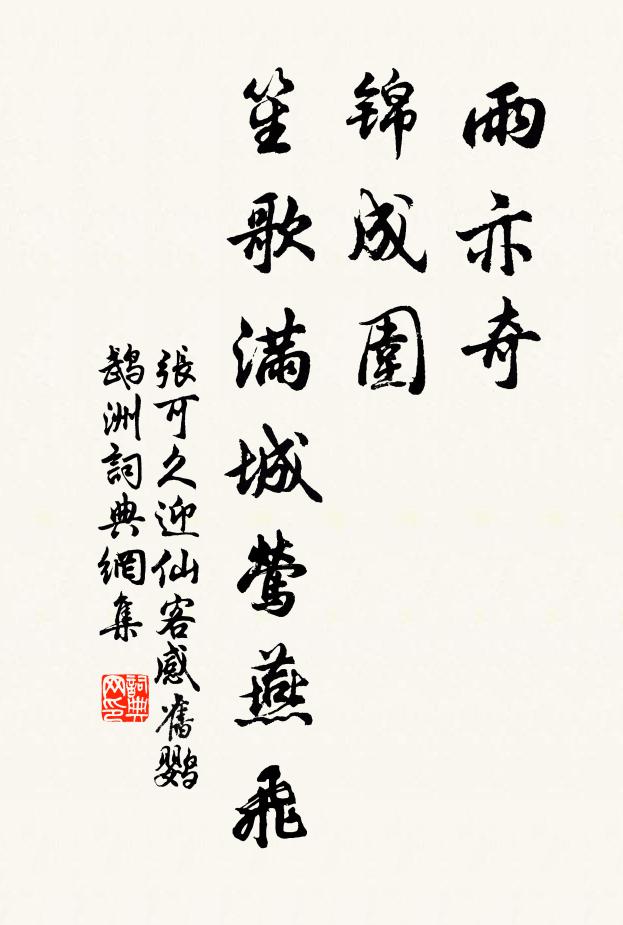 雨亦奇
錦成圍
笙歌滿城鶯燕飛
張可久迎仙客感舊鸚
鵡洲詞典網集
詞典
网印